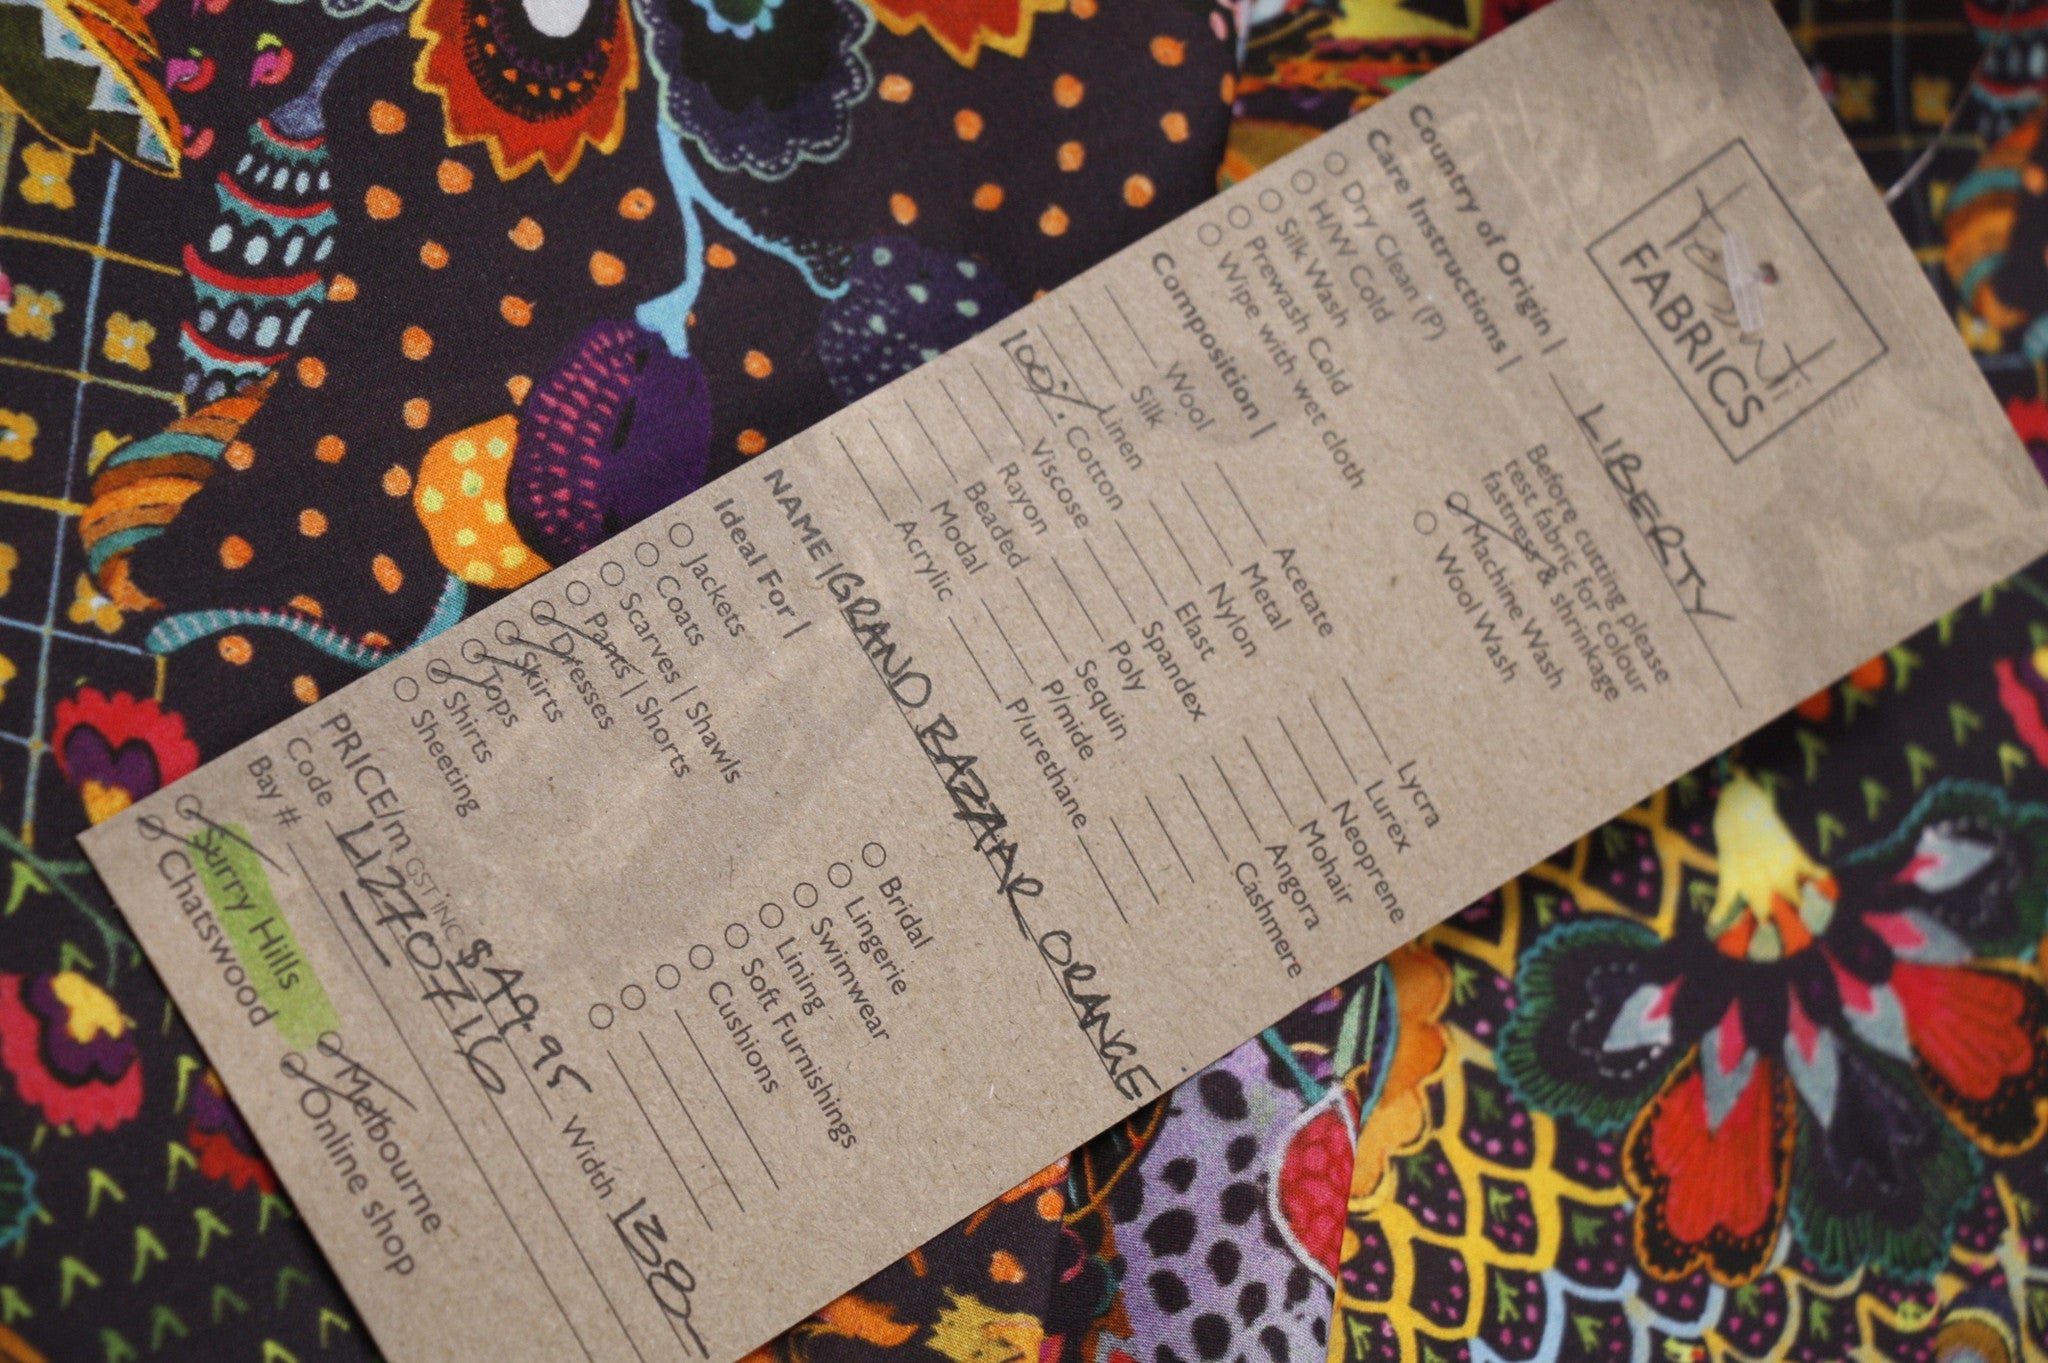 Tessuti
FABRICS
Country of Origin | LIBERTY
Care Instructions |
Before cutting please
test fabric for colour
fastness & shrinkage
Dry Clean (P)
H/W Cold
Silk Wash
Prewash Cold
Wipe with wet cloth
Machine Wash
Wool Wash
Composition |
Wool
Silk
Linen
100% Cotton
Viscose
Rayon
Beaded
Modal
Acrylic
Acetate
Metal
Nylon
Elast
Spandex
Poly
Sequin
P/mide
P/urethane
Lycra
Lurex
Neoprene
Mohair
Angora
Cashmere
NAME | GRAND BAZAAR ORANGE
Ideal For |
Jackets
Coats
Scarves | Shawls
Pants | Shorts
Dresses
Skirts
Tops
Shirts
Sheeting
Bridal
Lingerie
Swimwear
Lining
Soft Furnishings
Cushions
PRICE/m GST INC $49.95 Width 138
Code LIZ70716
Bay #
Surry Hills
Chatswood
Melbourne
Online shop